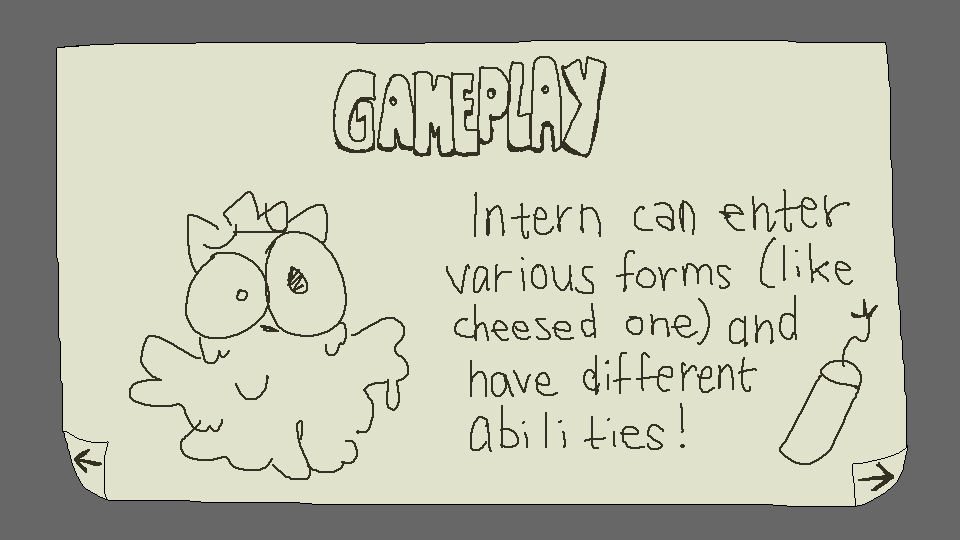 GAMEPLAY
Intern can enter
various forms (like
cheesed one) and
have different
abilities!